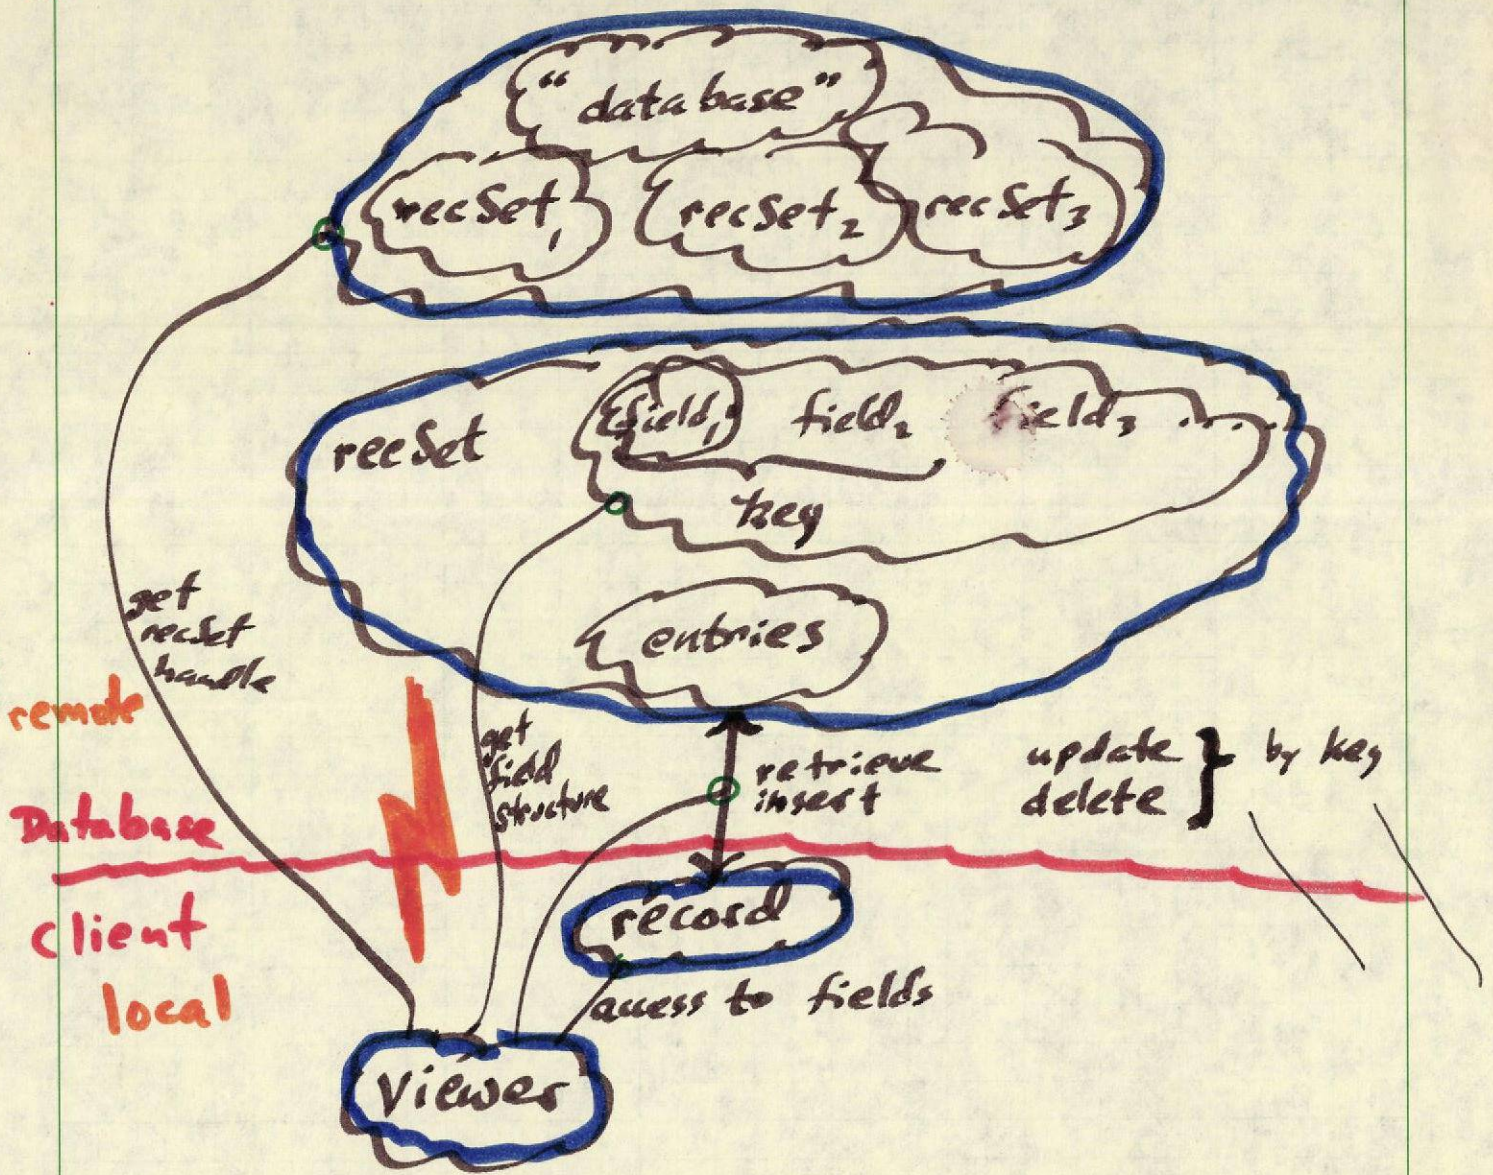 "database"
recSet1 recSet2 recSet3
recSet
field1 field2 field3 .....
key
entries
get
recSet
handle
remote
get
field
structure
retrieve
insert
update
delete
by key
Database
Client
local
record
access to fields
Viewer